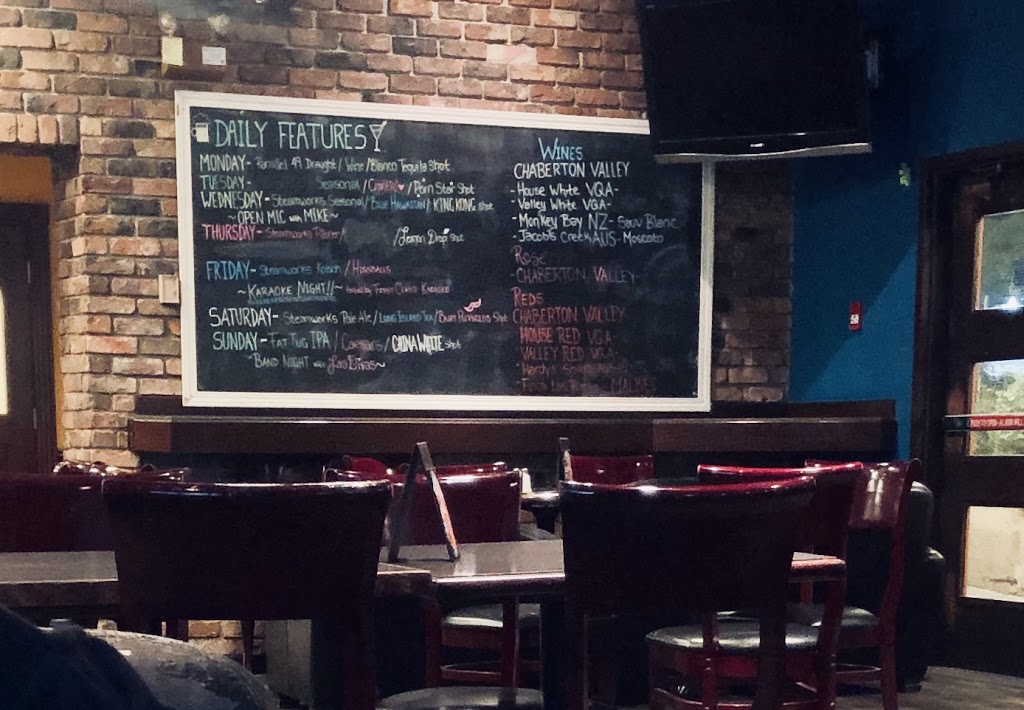 DAILY FEATURES
MONDAY- Parallel 49 Draught / Wine / Blanco Tequila Shot
TUESDAY- Seasonal / / Porn Star Shot
WEDNESDAY- Steamworks Seasonal / Blue Hawaiian / KING KONG shot
~OPEN MIC with MIKE~
THURSDAY- Steamworks Pilsner / / Lemon Drop shot
FRIDAY- Steamworks Kolsch / HIGHBALLS
~KARAOKE NIGHT!!~ Hosted by First Class Karaoke
SATURDAY- Steamworks Pale Ale / Long Island Tea / Burt Reynolds Shot
SUNDAY- FAT TUG IPA / Caesars / CHINA WHITE shot
~BAND NIGHT with Los Divas~
WINES
CHABERTON VALLEY
- House White VQA-
- Valley White VQA-
- Monkey Bay NZ- Sauv Blanc
- Jacob's Creek AUS- Moscato
ROSE
- CHABERTON VALLEY-
REDS
CHABERTON VALLEY
- HOUSE RED VQA-
- VALLEY RED VQA-
- Hardys
- MALBEC